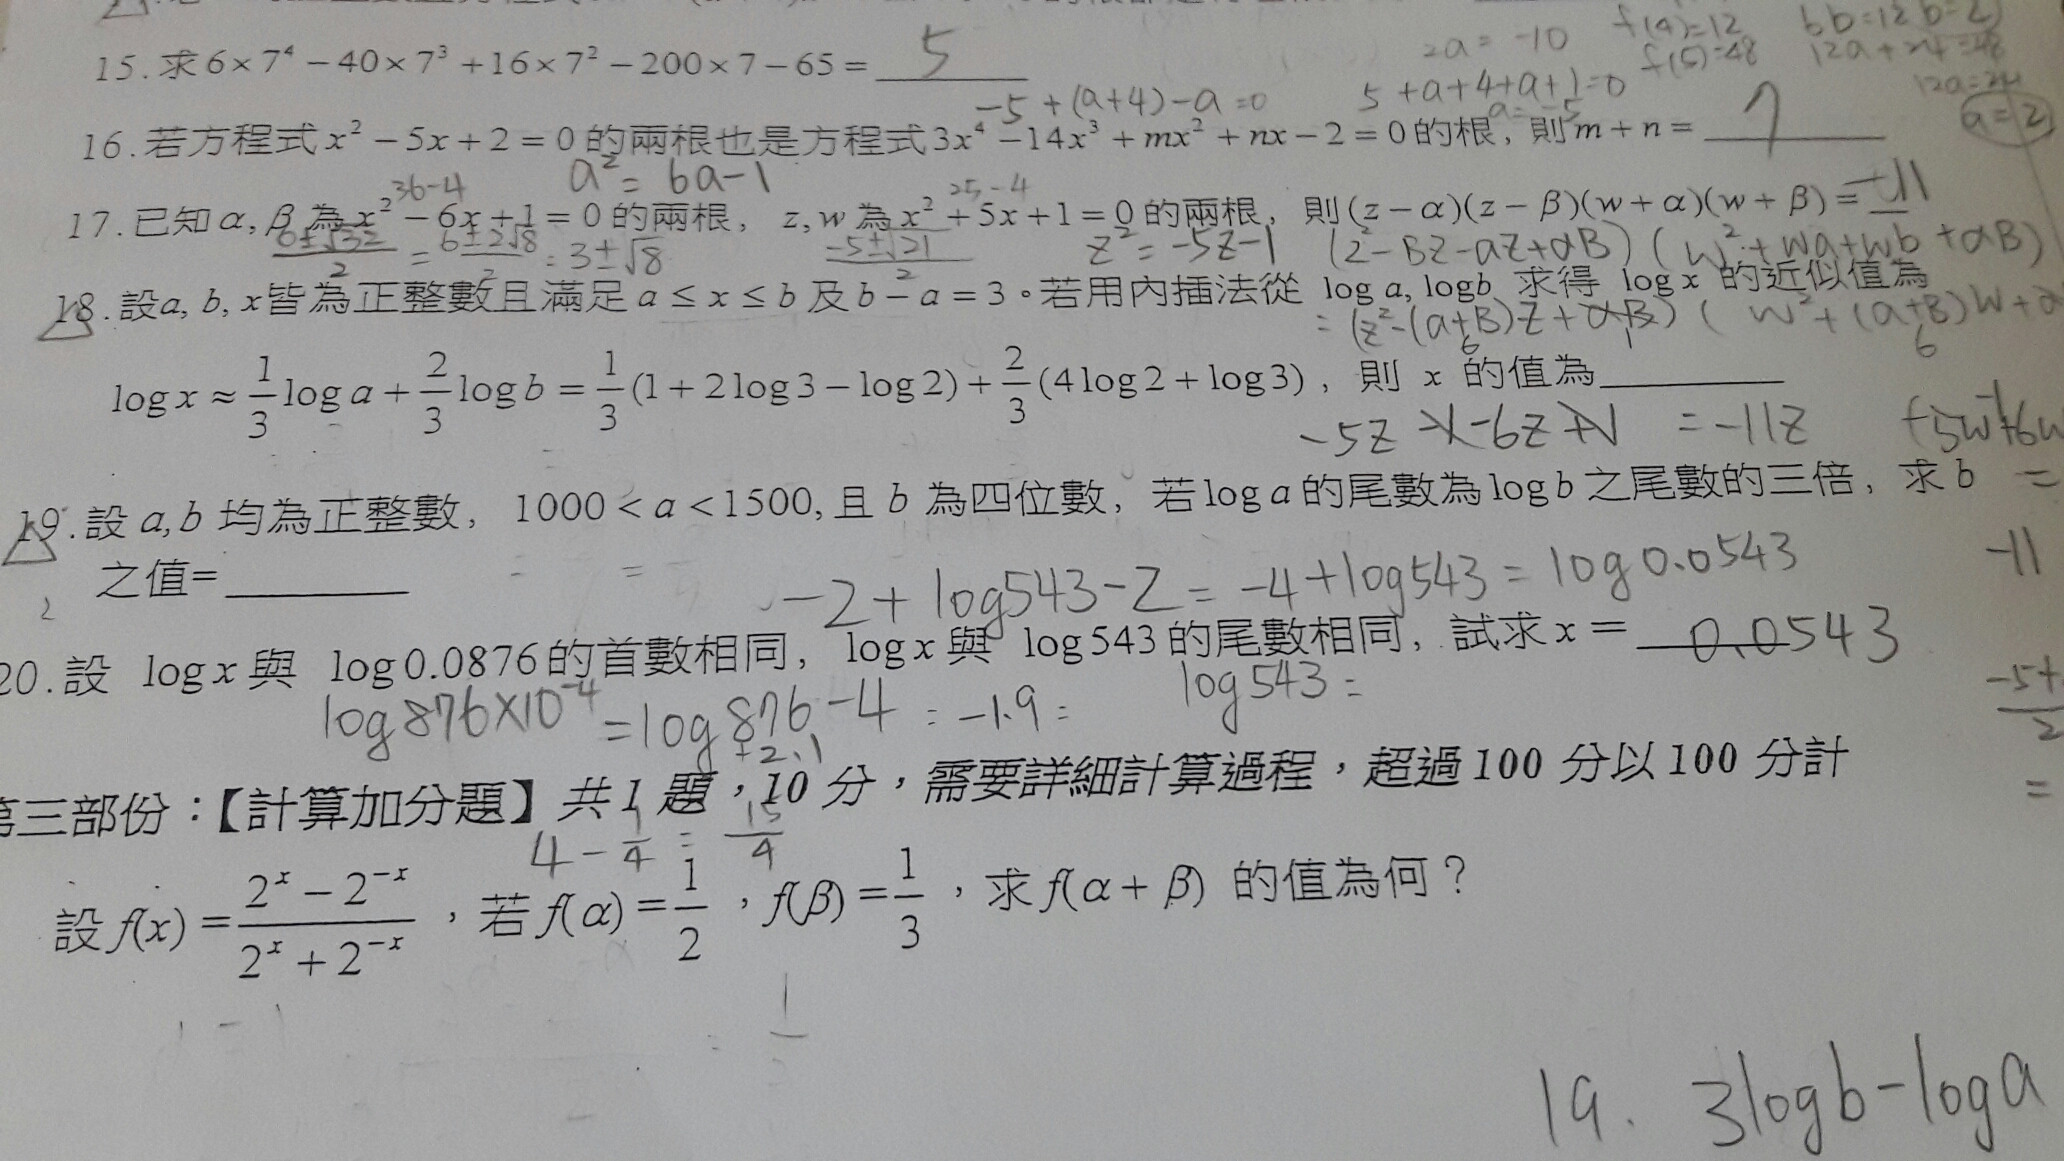 15.求6×7⁴－40×7³+16×7²－200×7－65＝ 5
2a = -10 f(4)=12 6b=12 b=2
f(5)=48 12a+24=48
-5+(a+4)-a=0 5+a+4+a+1=0 12a=24
a=-5 a=2
16.若方程式x²－5x+2=0的兩根也是方程式3x⁴－14x³+mx²+nx－2=0的根，則m+n= 7
36-4 a²= 6a-1 25-4
17.已知α, β為x²－6x+1=0的兩根， z, w為x²+5x+1=0的兩根，則(z－α)(z－β)(w+α)(w+β)= -11
(6±√32)/2 = (6±2√8)/2 = 3±√8 (-5±√21)/2 z²=-5z-1 (z²-Bz-az+aB)(w²+wa+wb+aB)
18.設a, b, x皆為正整數且滿足a≤x≤b及b－a=3。若用內插法從 log a, logb 求得 log x 的近似值為
=(z²-(a+B)z+aB)( w²+(a+B)w+
6 1 6
log x ≈ 1/3 log a + 2/3 log b = 1/3(1+2log3－log2)+2/3(4log2+log3)，則 x 的值為
-5z-1-6z+1 = -11z
19.設a,b均為正整數， 1000<a<1500,且b為四位數，若log a的尾數為logb之尾數的三倍，求b =
之值= -11
-2+log543-2=-4+log543=log0.0543
20.設 log x與 log0.0876的首數相同， log x與 log543的尾數相同，試求x＝ 0.0543
log876×10⁻⁴=log876-4=-1.9= log543=
+2.1
第三部份：【計算加分題】共1題，10分，需要詳細計算過程，超過100分以100分計
4-1/4=15/4
設f(x)=(2ˣ－2⁻ˣ)/(2ˣ+2⁻ˣ)，若f(α)=1/2，f(β)=1/3，求f(α+β) 的值為何？
19. 3logb-loga